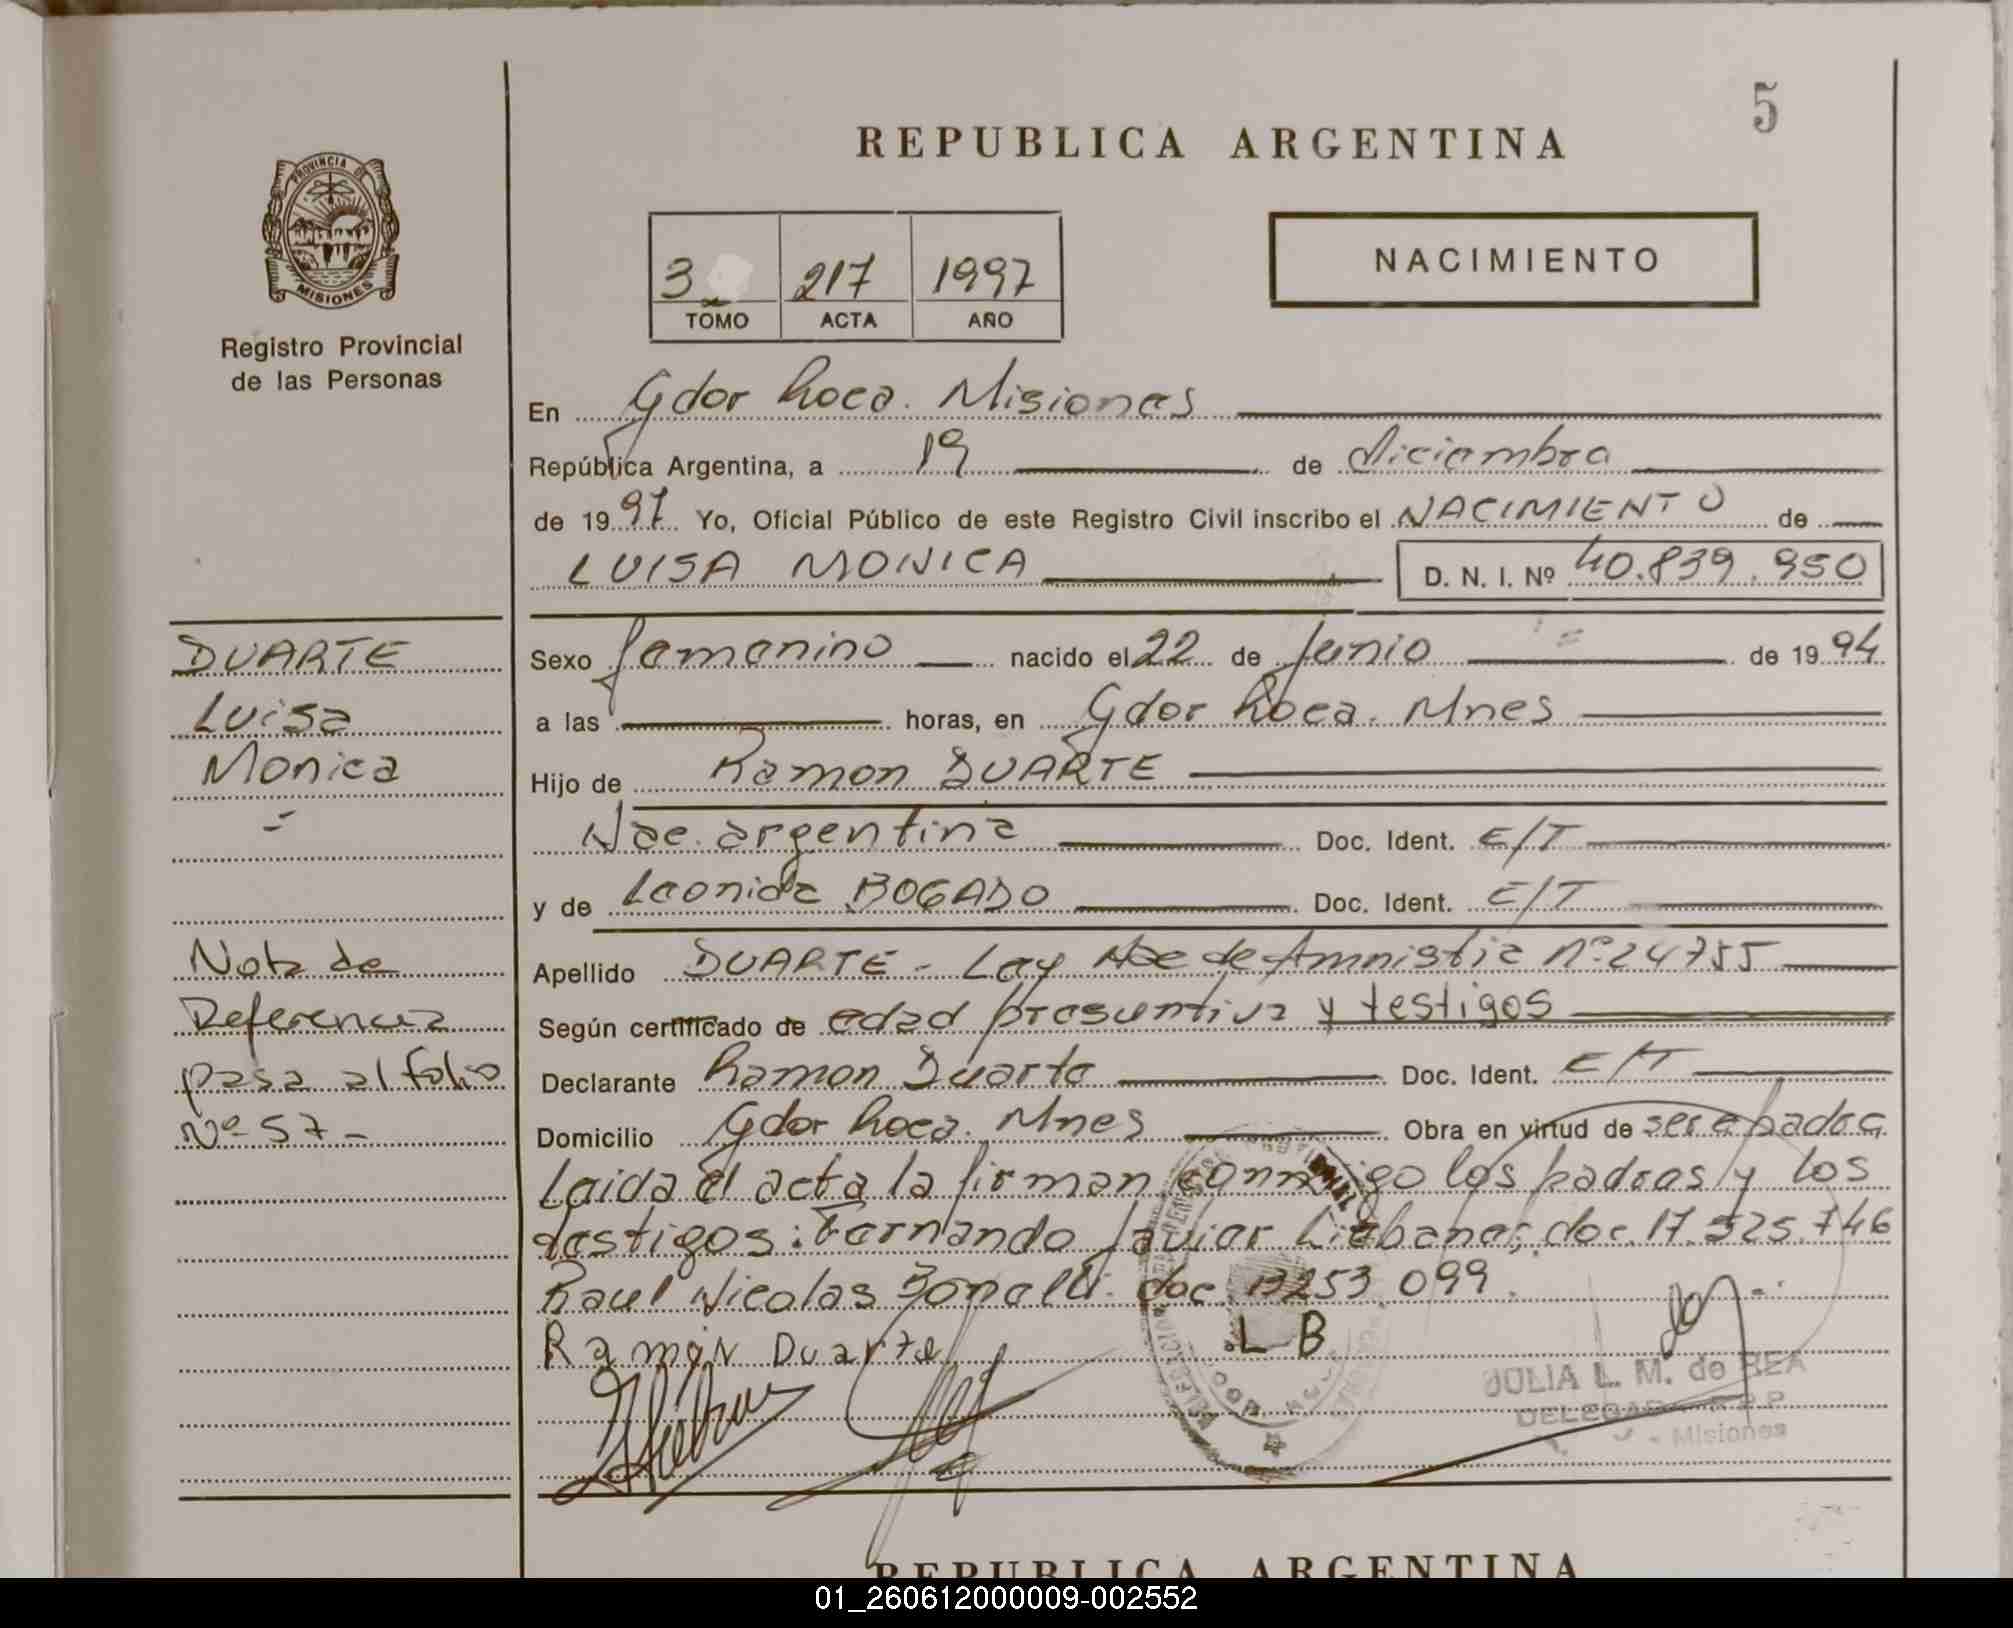 5
REPUBLICA ARGENTINA
PROVINCIA DE
MISIONES
Registro Provincial
de las Personas
3 217 1997
TOMO ACTA AÑO
NACIMIENTO
En Gdor Roca. Misiones
República Argentina, a 19 de diciembre
de 1997 Yo, Oficial Público de este Registro Civil inscribo el NACIMIENTO de
LUISA MONICA D. N. I. Nº 40.839.950
Sexo femenino nacido el 22 de Junio de 1994
a las horas, en Gdor Roca. Mnes
Hijo de Ramon DUARTE
Nac. argentina Doc. Ident. E/T
y de Leonida BOGADO Doc. Ident. E/T
Apellido DUARTE - Ley Nac de Amnistia Nº 24755
Según certificado de edad presuntiva y testigos
Declarante Ramon Duarte Doc. Ident. E/T
Domicilio Gdor Roca. Mnes Obra en virtud de ser el padre
Leida el acta la firman conmigo los padres y los
testigos: Fernando Javier doc. 17.525.746
Raul Nicolas doc. 13253.099
Ramón Duarte L B
JULIA L. M. de REA
DELEGADA R.P.P.
Misiones
DUARTE
Luisa
Monica
Nota de
Referencia
pasa al folio
Nº 57-
REPUBLICA ARGENTINA
01_260612000009-002552